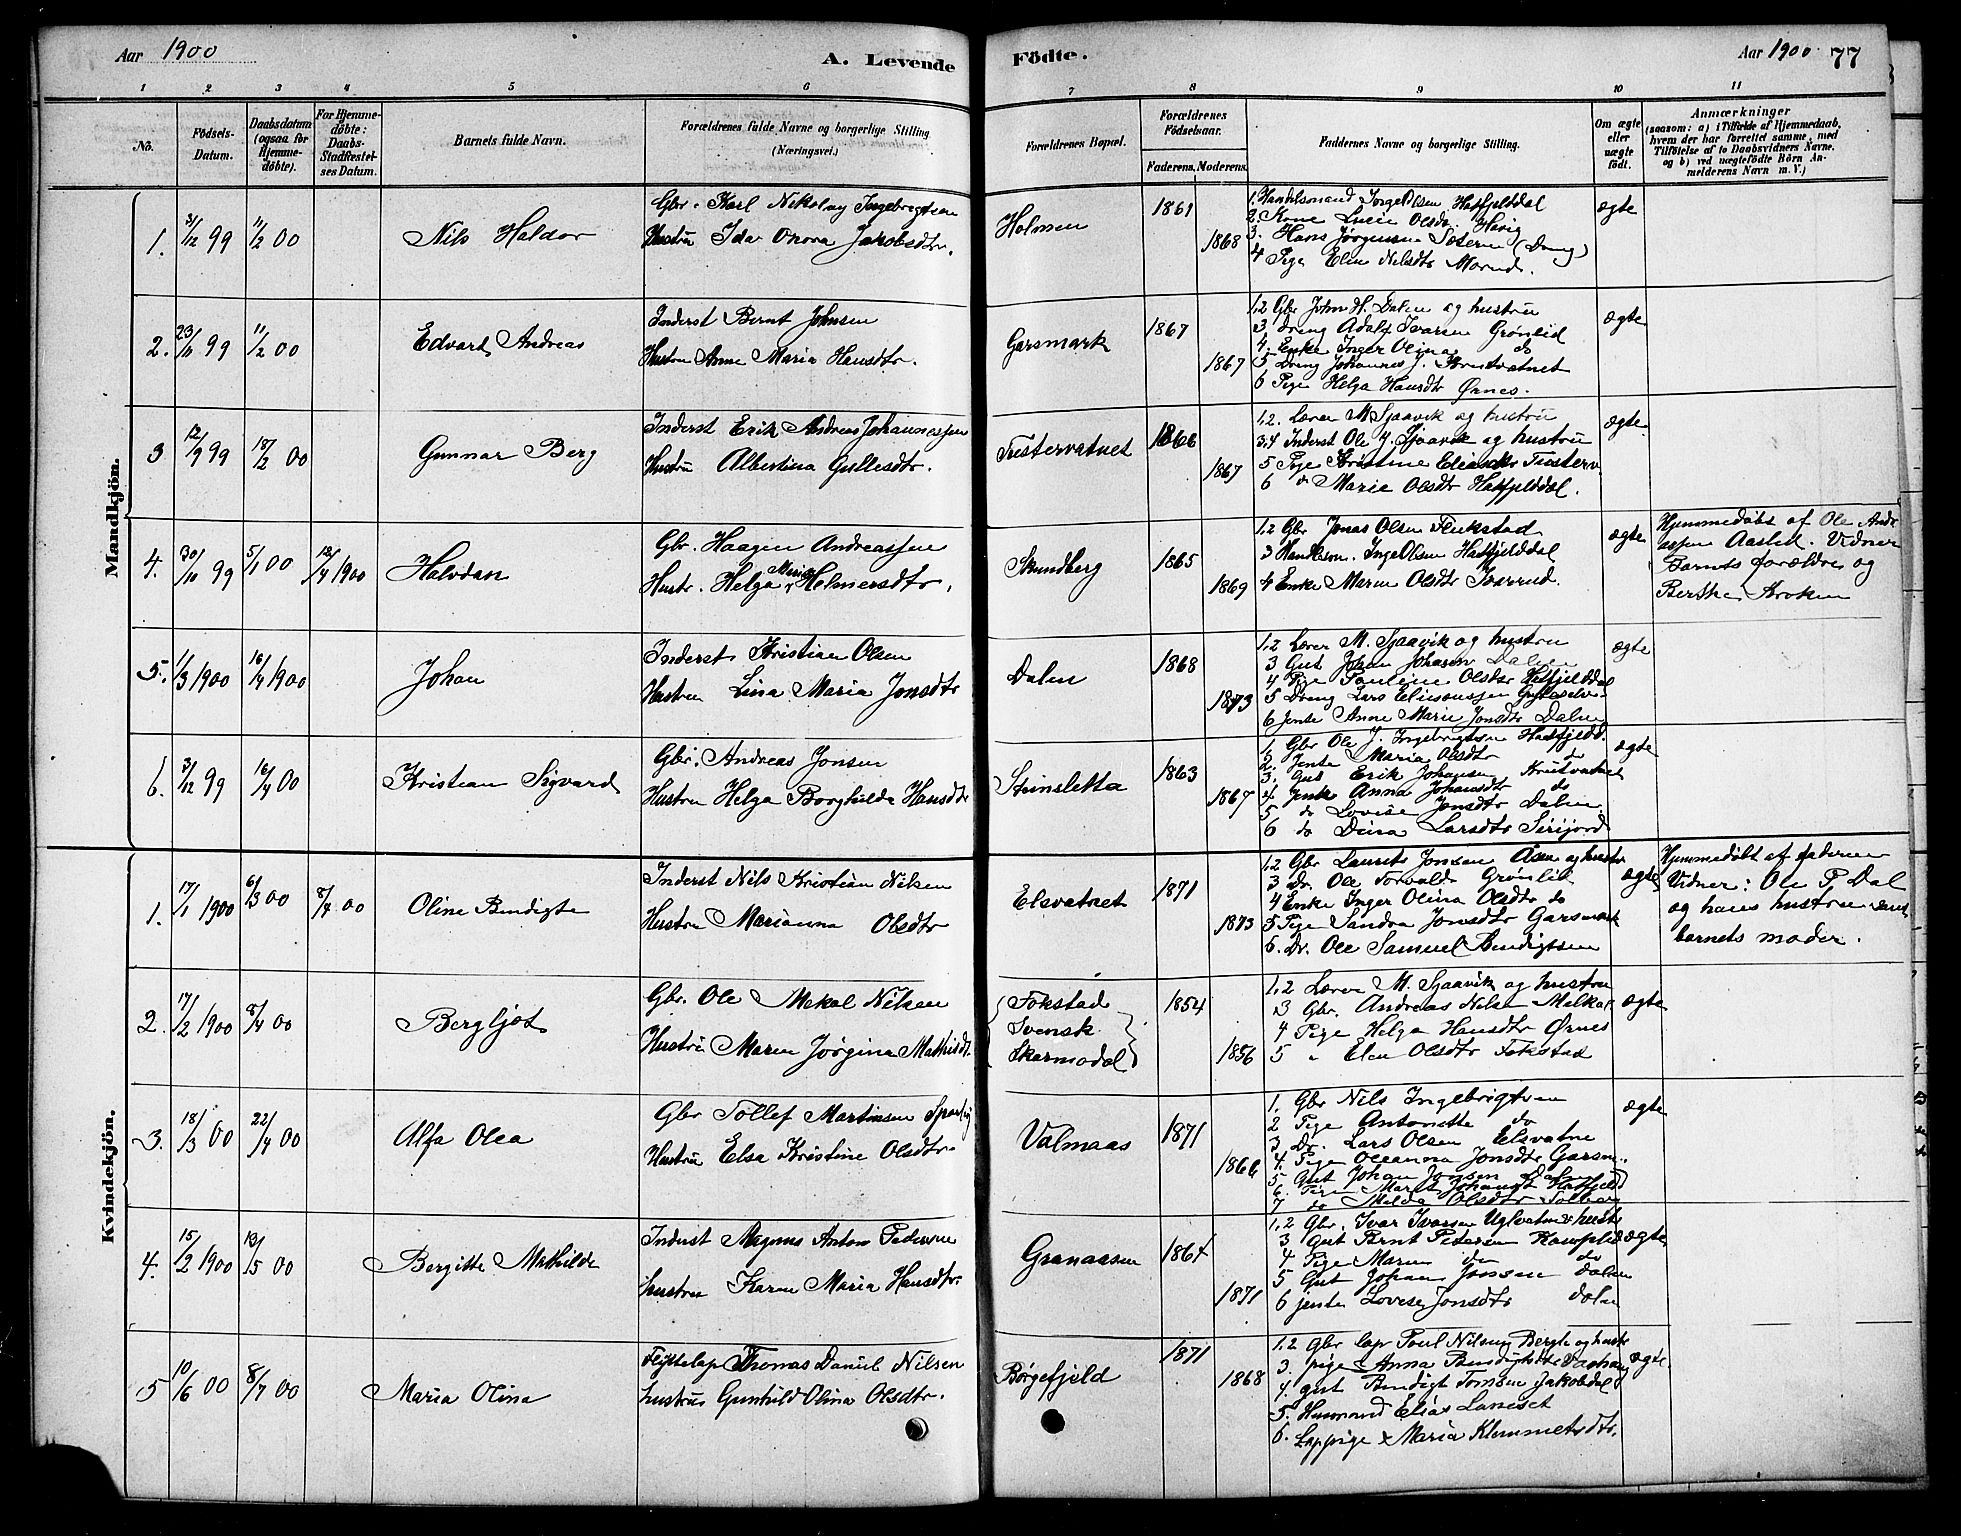 Aar 1900
A. Levende
Födte.
Aar 1900
77
1 2 3 4 5 6 7 8 9 10 11
No.
Födsels-Datum.
Daabsdatum (ogsaa for Hjemme-döbte).
For Hjemme-döbte: Daabs-Stadfæstelses Datum.
Barnets fulde Navn.
Forældrenes fulde Navne og borgerlige Stilling.
(Næringsvei.)
Forældrenes Bopæl.
Forældrenes Födselsaar.
Faderens. Moderens.
Faddernes Navne og borgerlige Stilling.
Om ægte eller uægte födt.
Anmærkninger
(saasom: a) i Tilfælde af Hjemmedaab, hvem der har forrettet samme, med Tilföielse af to Daabsvidners Navne, og b) ved uægtefödte Börn Anmelderens Navn m. V.)
Mandkjön.
1. 3/12 99 11/2 00 Nils Haldor
Gbr. Karl Nikolay Ingebrigtsen
Hustru Ida Onora Jakobsdtr.
Holmen 1861 1868
1. Handelsmand Inge Olsen Hatfjelddal
2. Kone Lucie Olsdtr Havig
3. Hans Jørgensen Sæteren (Dreng)
4 Pige Elen Nilsdtr
ægte
2. 23/11 99 11/2 00 Edvart Andreas
Inderst Bernt Johnsen
Hustru Anne Maria Hansdtr.
Garsmark 1867 1867
1,2 Gbr John H. Dalen og hustru
3 Dreng Adolf Ivarsen Grønlid
4. Enke Inger Olina do
5 Dreng Johannes J. Krutvatnet
6 Pige Helga Hansdtr Ørnes.
ægte
3 12/9 99 18/2 00 Gunnar Berg
Inderst Erik Andreas Johannessen
Hustru Albertina Gullesdtr.
Tustervatnet 1866 1867
1,2. Lærer M. Sjaavik og hustru
3,4 Inderst Ole J. Sjaavik og hustru
5 Pige Kristine Eliasdtr Tusterv.
6 do Marie Olsdtr Hatfjelddal.
ægte
4. 30/10 99 5/1 00 18/4 1900 Halvdan
Gbr. Haagen Andreassen
Hustr. Helga Marie Helmersdtr.
Skundberg 1865 1869
1,2 Gbr Jonas Olsen Flukstad
3 Handelsm. Inge Olsen Hatfjelddal
4 Enke Maren Olsdtr
ægte
Hjemmedøbt af Ole Andr
assen Aasted. Vidner
Barnets forældre og
Berthe Kroken
5. 11/3 1900 16/4 1900 Johan
Inderst Kristian Olsen
Hustru Lina Maria Jonsdtr
Dalen 1868 1873
1,2 Lærer M. Sjaavik og hustru
3 Gut Johan Johansen Dalen
4 Pige Pauline Olsdtr Hatfjelddal
5 Dreng Lars Eliesenssen
6 Jente Anne Marie Jonsdtr Dalen
ægte
6. 3/12 99 16/4 00 Kristian Sigvard
Gbr. Andreas Jonsen
Hustru Helga Borghilda Hansdtr
Steinsletta 1863 1867
1, Gbr Ole J. Ingebrigtsen Hatfjeldd.
2. Jente Maria Olsdtr do
3. Gut Erik Johansen Krutvatnet
4 Jente Anna Johansdtr do
5 do Lovise Jonsdtr Dalen
6 do Dina Larsdtr Sirijord
ægte
Kvindekjön.
1. 17/1 1900 6/3 00 8/4 00 Oline Bendigte
Inderst Nils Kristian Nilsen
Hustru Marianna Olsdtr
Elsvatnet 1871 1873
1,2 Gbr Laurits Jonsen Åsen og hustru
3 Dr. Ole Torvald Grønlid
4 Enke Inger Olina Olsdtr do
5 Pige Sandra Jonsdtr Garsmark
6. Dr. Ole Samuel Bendigtsen
ægte
Hjemmedøbt af faderen
Vidner: Ole P. Dal
og hans hustru samt
barnets moder.
2. 17/2 1900 8/4 00 Bergljot
Gbr. Ole Mekal Nilsen
Hustru Maren Jørgine Mathisdt.
Fokstad
Svensk
Skarmodal
1854 1856
1,2 Lærer M. Sjaavik og hustru
3 Gbr. Andreas Nilsen
4 Pige Helga Hansdtr Ørnes
5 " Elen Olsdtr Fokstad
ægte
3. 18/3 00 22/4 00 Alfa Olea
Gbr Tollef Martinsen
Hustru Elsa Kristine Olsdtr.
Valmaas 1871 1866
1. Gbr Nils Ingebrigtsen
2 Pige Antonette do
3 Dr. Lars Olsen Elsvatne
4. Pige Oleanna Jonsdtr Garsm.
5. Gut Johan Jonsen Dalen
6. Pige Marit Johansdt Hatfjeld
7 do Milda Olsdtr
ægte
4. 15/2 1900 13/5 00 Bergitte Mathilde
Inderst Magnus Anton Pedersen
hustru Karen Maria Hansdtr.
Granaasen 1864 1871
1,2 Gbr. Ivar Ivarsen Uglvatne hustr
3 Gut Bernt Petersen
4 Pige Maren do do
5 Gut Johan Jonsen Dalen
6 jente Lovise Jonsdtr Dalen
ægte
5 10/6 00 8/7 00 Maria Olina
Flyttelap Thomas Daniel Nilsen
hustru Gunhild Olina Olsdtr.
Børgefjeld 1871 1868
1,2 Gbr lap Poul Nilsen og hustr
3 pige Anna Bendigtsdtr
4. gut Bendigt Tomsen Jakobdal
5. Husmand Elias
6. Lappige Maria Klemmetsdtr.
ægte